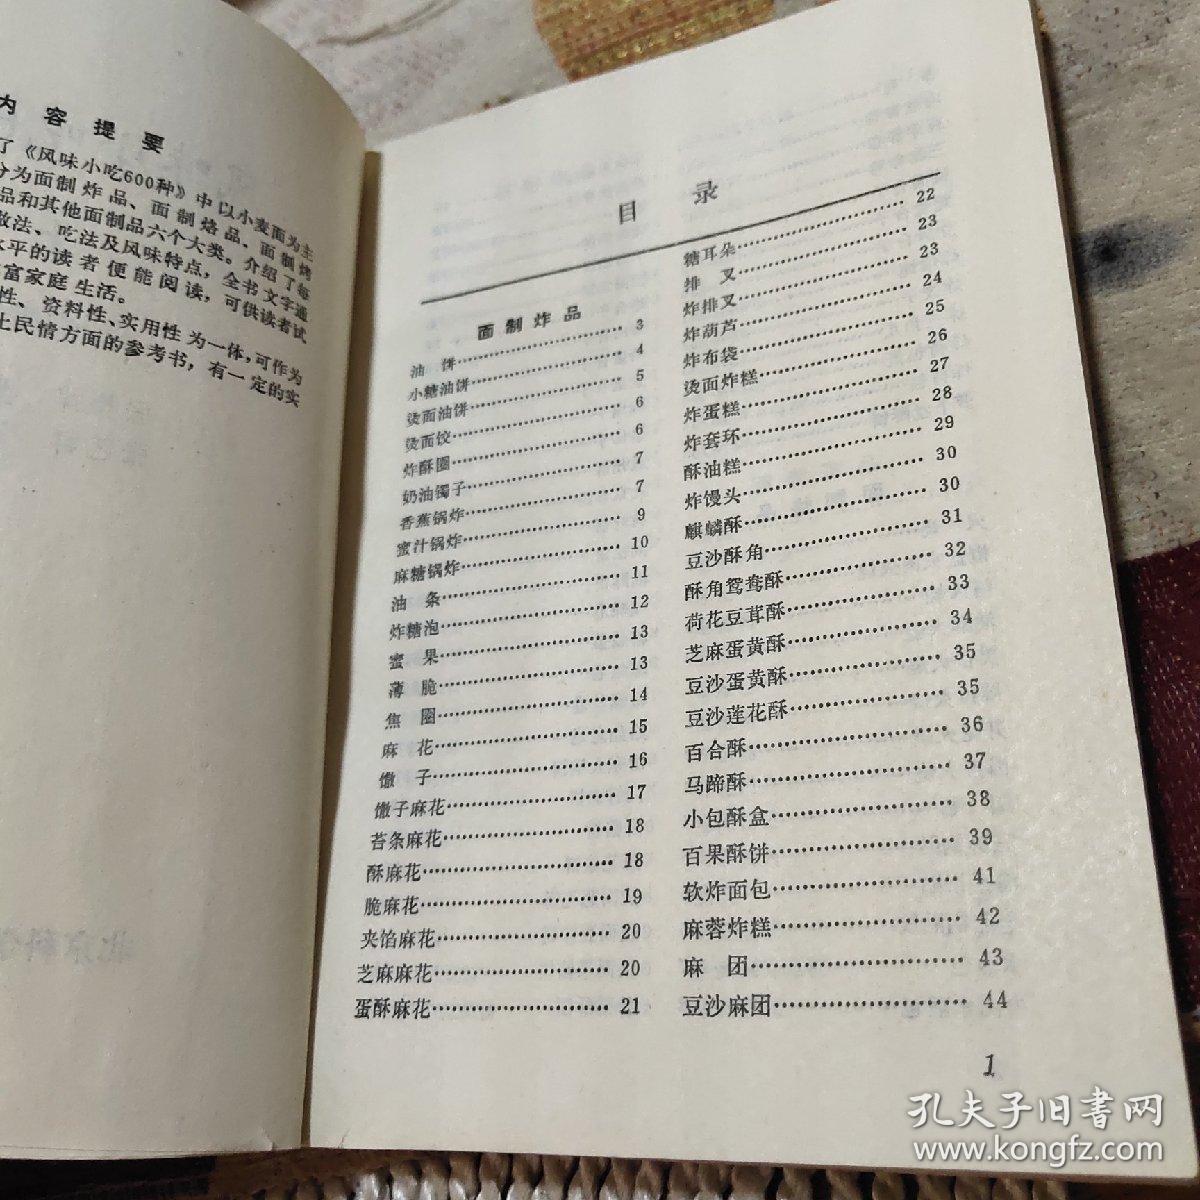 内容提要
了《风味小吃600种》中以小麦面为主
分为面制炸品、面制烙品、面制烤
品和其他面制品六个大类。介绍了每
做法、吃法及风味特点，全书文字通
水平的读者便能阅读，可供读者试
富家庭生活。
性、资料性、实用性为一体，可作为
土民情方面的参考书，有一定的实
目录
面制炸品
油饼 3
小糖油饼 4
烫面油饼 5
烫面饺 6
炸酥圈 6
奶油镯子 7
香蕉锅炸 7
蜜汁锅炸 9
麻糖锅炸 10
油条 11
炸糖泡 12
蜜果 13
薄脆 13
焦圈 14
麻花 15
馓子 16
馓子麻花 17
苔条麻花 18
酥麻花 18
脆麻花 19
夹馅麻花 20
芝麻麻花 20
蛋酥麻花 21
糖耳朵 22
排叉 23
炸排叉 23
炸葫芦 24
炸布袋 25
烫面炸糕 26
炸蛋糕 27
炸套环 28
酥油糕 29
炸馒头 30
麒麟酥 30
豆沙酥角 31
酥角鸳鸯酥 32
荷花豆茸酥 33
芝麻蛋黄酥 34
豆沙蛋黄酥 35
豆沙莲花酥 35
百合酥 36
马蹄酥 37
小包酥盒 38
百果酥饼 39
软炸面包 41
麻蓉炸糕 42
麻团 43
豆沙麻团 44
1
孔夫子旧书网
www.kongfz.com